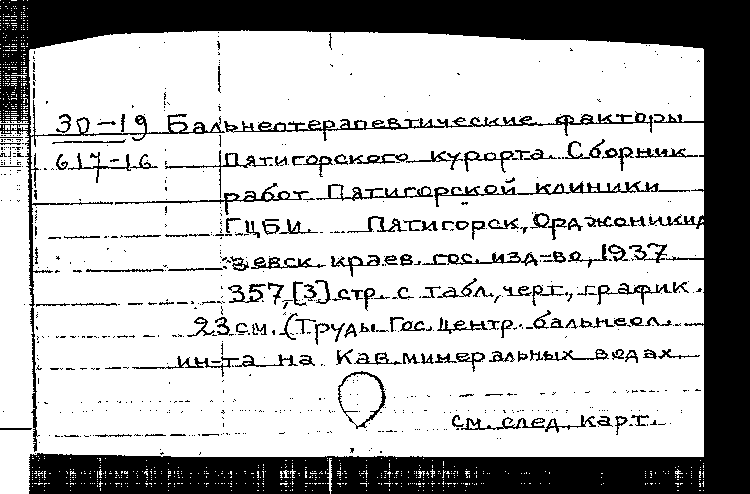 30-19 Бальнеотерапевтические факторы
617-16 Пятигорского курорта. Сборник
работ Пятигорской клиники
ГЦБИ. Пятигорск, Орджоникид
зевск. краев. гос. изд-во, 1937.
357, [3] стр. с табл., черт., график.
23 см. (Труды Гос. центр. бальнеол.
ин-та на Кав. минеральных водах
см. след. карт.